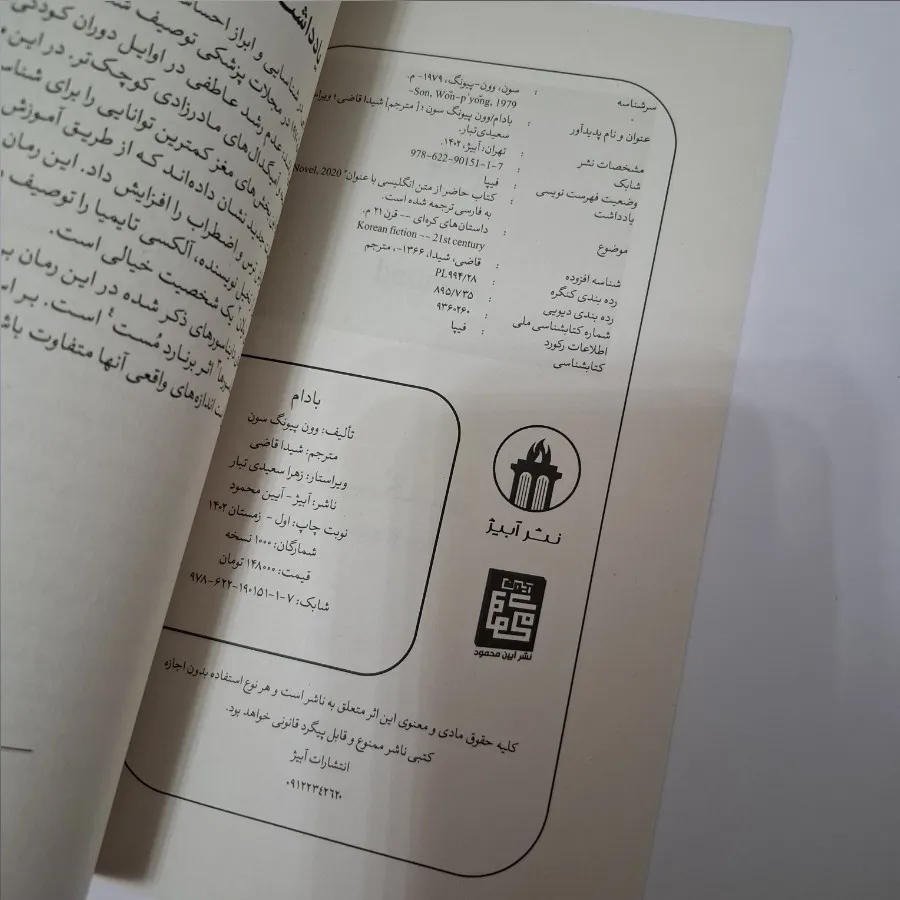 سرشناسه : سون، وون-پیونگ، ۱۹۷۹- م.
Son, Wŏn-p'yŏng, 1979-
عنوان و نام پدیدآور : بادام/وون پیونگ سون ؛ [مترجم] شیدا قاضی؛
سعیدی تبار.
مشخصات نشر : تهران: آبیژ، ۱۴۰۲.
شابک : 978-622-90151-1-7
وضعیت فهرست نویسی : فیپا
یادداشت : کتاب حاضر از متن انگلیسی با عنوان" Novel, 2020
به فارسی ترجمه شده است.
موضوع : داستان‌های کره‌ای -- قرن ۲۱ م.
Korean fiction -- 21st century
شناسه افزوده : قاضی، شیدا، ۱۳۶۶-، مترجم
رده بندی کنگره : PL۹۹۴/۲۸
رده بندی دیویی : ۸۹۵/۷۳۵
شماره کتابشناسی ملی : ۹۳۶۰۲۶۰
اطلاعات رکورد : فیپا
کتابشناسی
بادام
تألیف: وون پیونگ سون
مترجم: شیدا قاضی
ویراستار: زهرا سعیدی تبار
ناشر: آبیژ - آیین محمود
نوبت چاپ: اول - زمستان ۱۴۰۲
شمارگان: ۱۰۰۰ نسخه
قیمت: ۱۴۸۰۰۰ تومان
شابک: ۷-۱-۹۰۱۵۱-۶۲۲-۹۷۸
نشر آبیژ
نشر آیین محمود
کلیه حقوق مادی و معنوی این اثر متعلق به ناشر است و هر نوع استفاده بدون اجازه
کتبی ناشر ممنوع و قابل پیگرد قانونی خواهد بود.
انتشارات آبیژ
۰۹۱۲۲۳۴۲۶۲۰
یادداشت
شناسایی و ابراز احساس
در مجلات پزشکی توصیف شد
عدم رشد عاطفی در اوایل دوران کودکی
آمیگدال‌های مادرزادی کوچک‌تر. در این
بخش‌های مغز کمترین توانایی را برای شناس
جدید نشان داده‌اند که از طریق آموزش
ترس و اضطراب را افزایش داد. این رمان
تخیل نویسنده، آلکسی تایمیا را توصیف
یک شخصیت خیالی است.
دایناسورهای ذکر شده در این رمان بر
اثر برنارد مُست⁴ است. بر اس
اندازه‌های واقعی آنها متفاوت باش